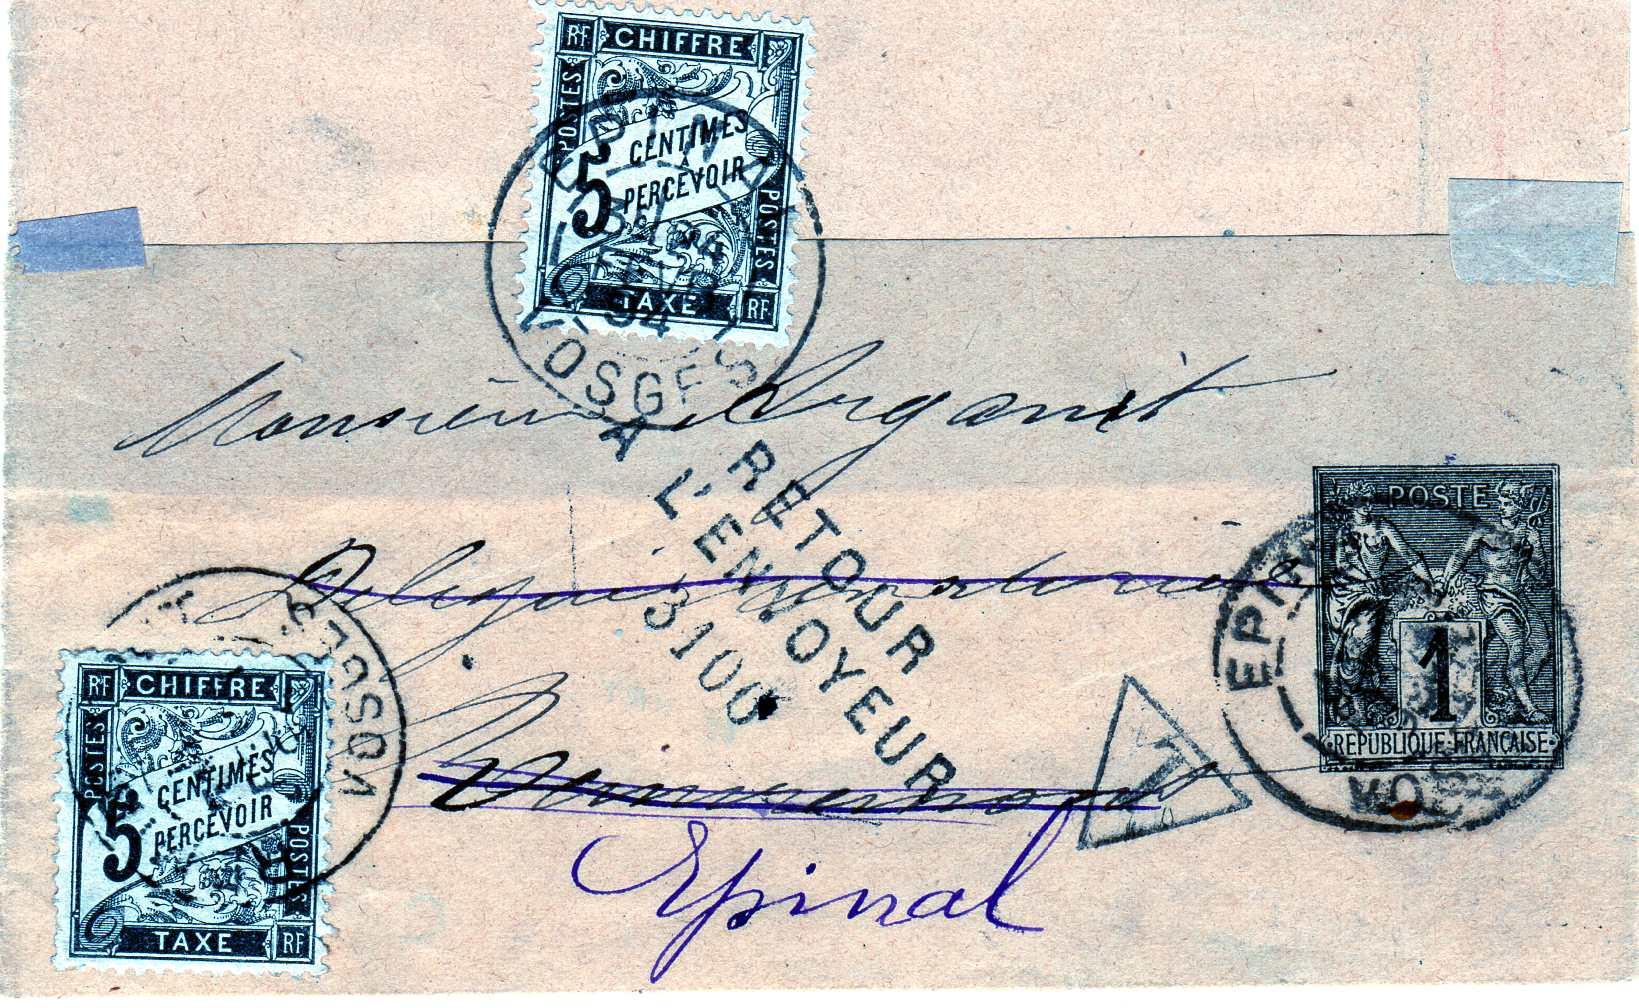 RF CHIFFRE
POSTES
5 CENTIMES
À
PERCEVOIR
POSTES
TAXE RF
EPINAL
FEVR
94
VOSGES
Monsieur Arganit
RETOUR
A L'ENVOYEUR
3100
POSTE
1
REPUBLIQUE FRANÇAISE
EPINAL
VOSGES
T
RF CHIFFRE
POSTES
5 CENTIMES
À
PERCEVOIR
POSTES
TAXE RF
VOSGES
Epinal